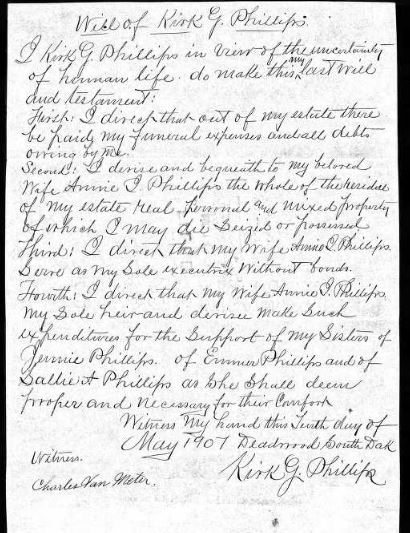 Will of Kirk G. Phillips
I Kirk G. Phillips in view of the uncertainty
of human life. do make this my last will
and testament:
First: I direct that out of my estate there
be paid my funeral expenses and all debts
owing by me.
Second: I devise and bequeath to my beloved
Wife Annie I Phillips the whole of the residue
of my estate real personal and mixed property
of which I may die seized or possessed
Third: I direct that my Wife Annie I. Phillips.
Serve as my Sole executrix without bonds.
Fourth: I direct that my Wife Annie I. Phillips.
My Sole heir and devisee make such
expenditures for the Support of my Sisters of
Jennie Phillips. of Emma Phillips and of
Sallie A Phillips as She Shall deem
proper and necessary for their Comfort
Witness My hand this Tenth day of
May 1907 Deadwood South Dak
Kirk G. Phillips
Witness.
Charles Van Meter.